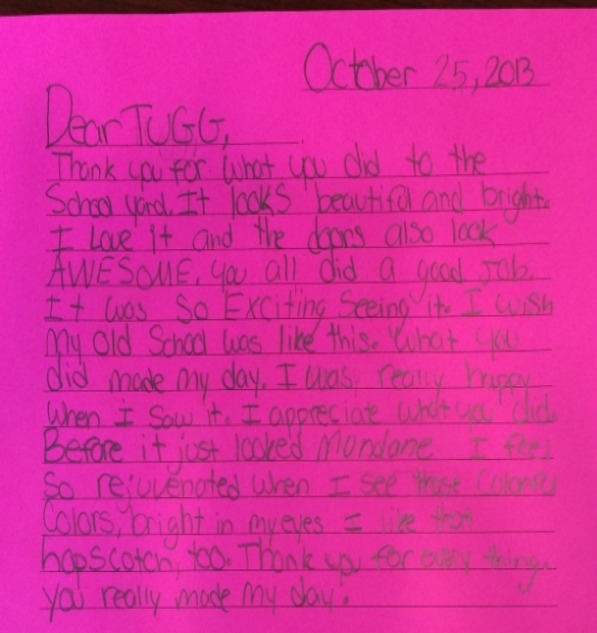 October 25, 2013
Dear TUGG,
Thank you for what you did to the
School yard. It looks beautiful and bright.
I Love it and the doors also look
AWESOME. you all did a good Job.
It was So Exciting Seeing it. I wish
My old School was like this. What you
did made my day. I was really happy
when I saw it. I appreciate what you did.
Before it just looked Mundane I feel
So rejuvenated when I see those
Colors, bright in my eyes I like that
hopscotch, too. Thank you for every thing.
you really made my day.